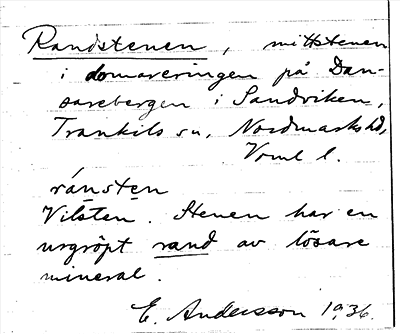 Randstenen, mittstenen
i domareringen på Dan-
sarebergen i Sandviken,
Trankils sn, Nordmarks hd,
Vrml l.
ránsten
Vilsten. Stenen har en
urgröpt rand av lösare
mineral.
E. Andersson 1936.